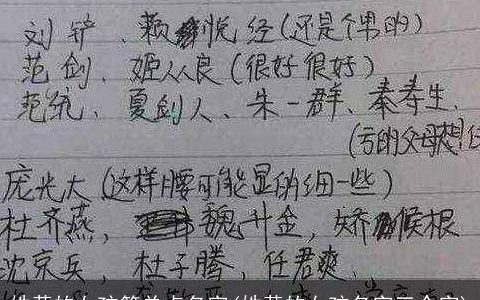 刘铲、赖悦经(还是个男的)
范剑、姬从良(很好很好)
范统、夏剑人、朱一群、秦寿生、
(亏的父母想
庞光大(这样腰可能显的细一些)
杜齐燕，魏升金，矫候根
沈京兵，杜子腾，任君爽